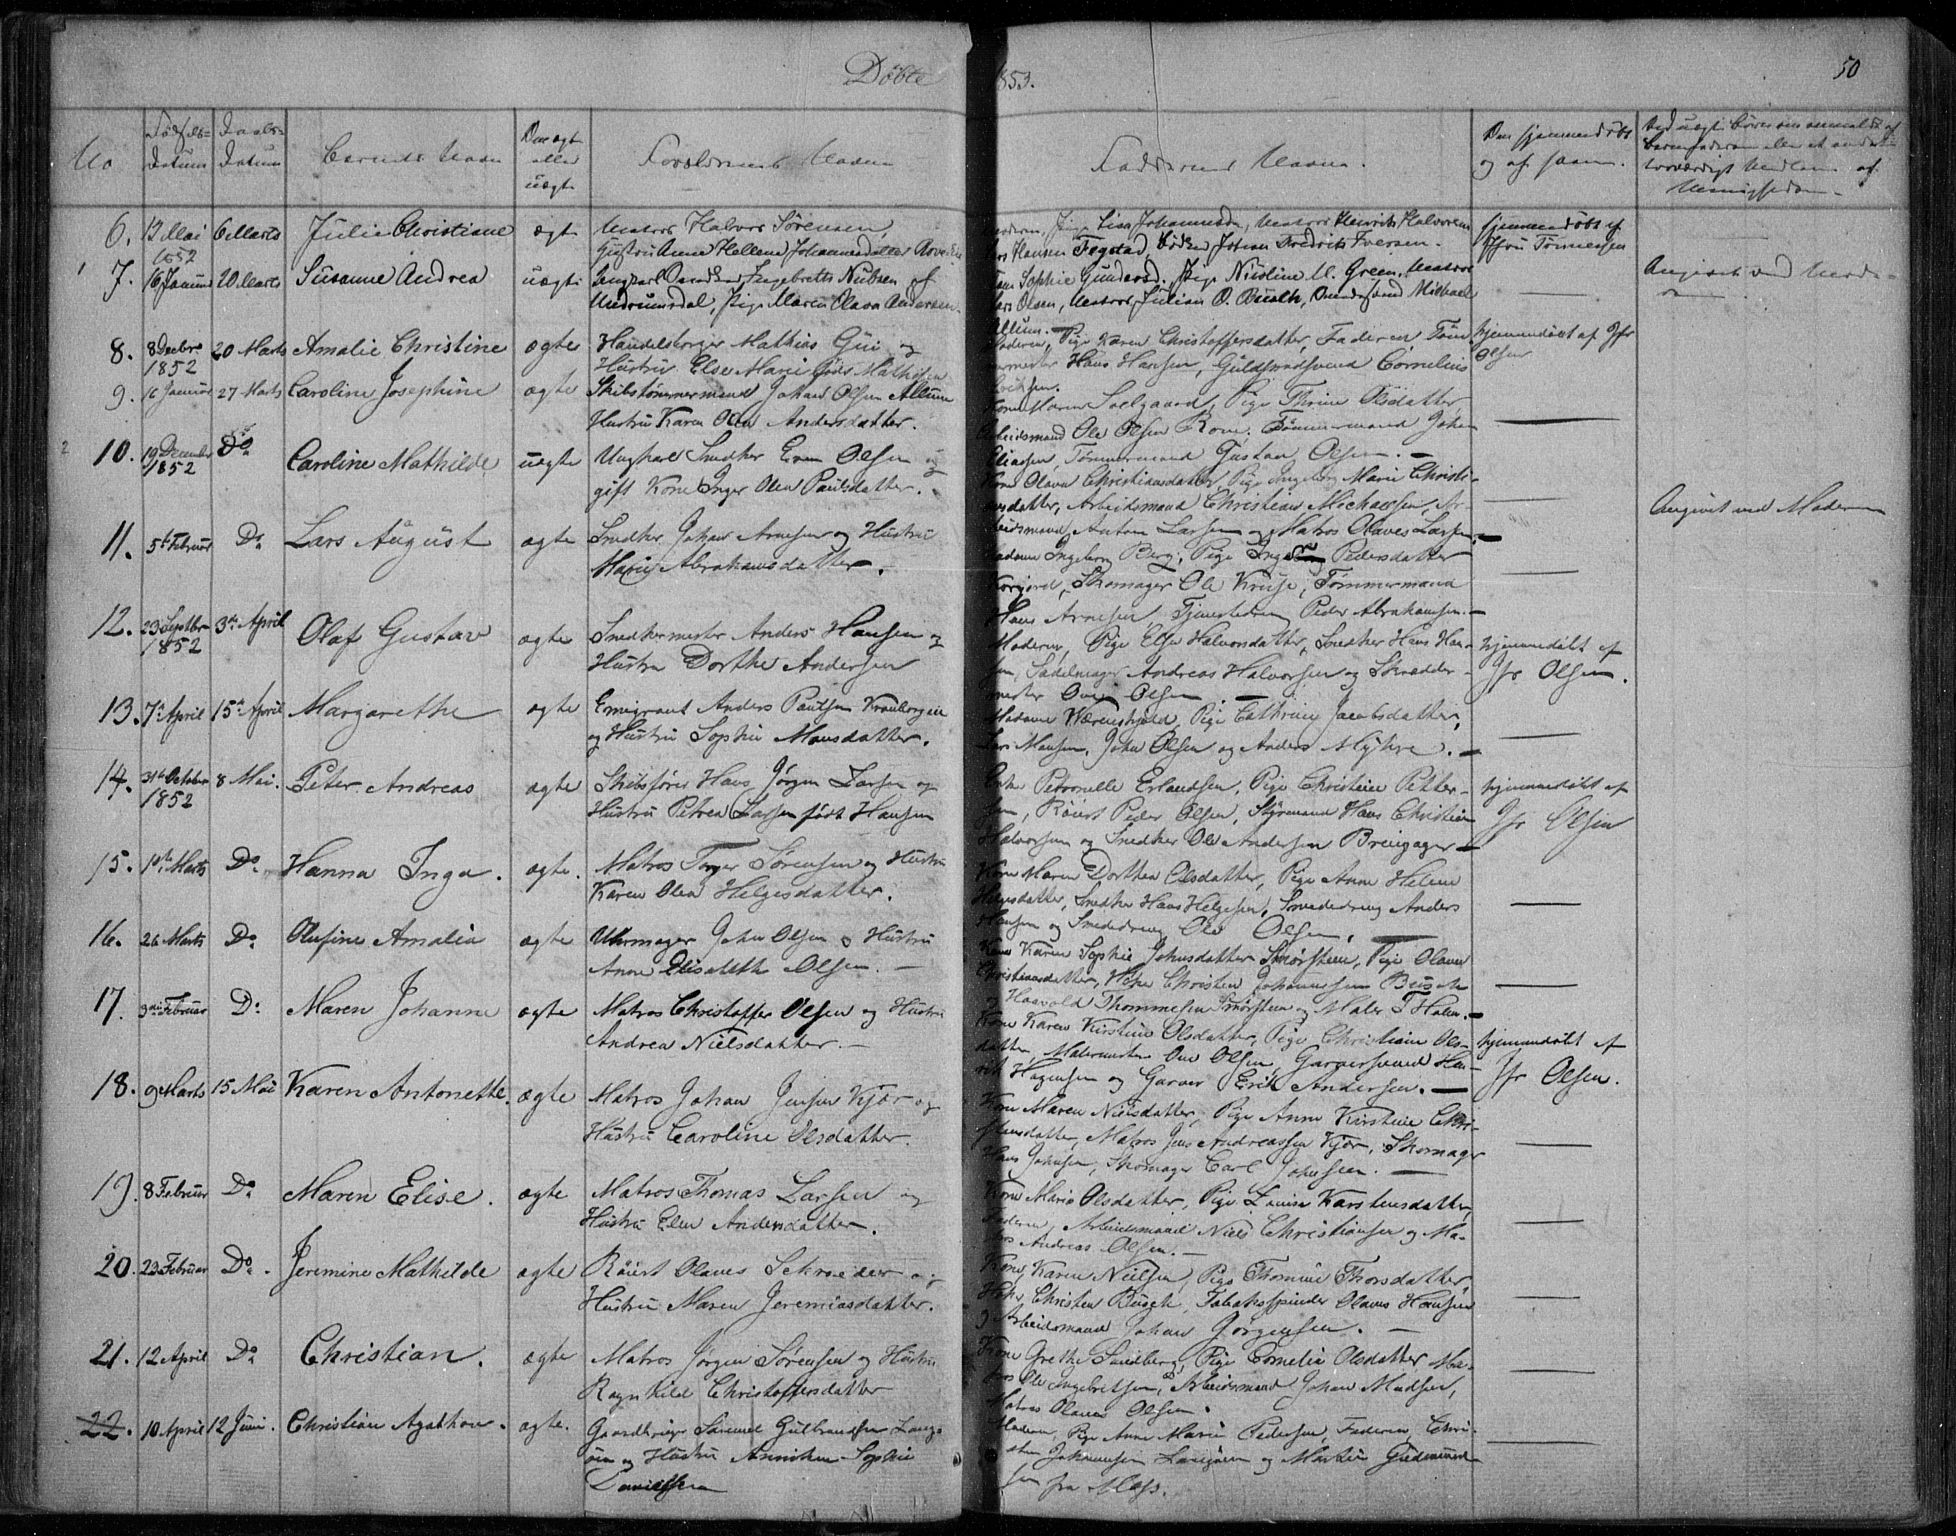 Döbte 1853.
50
No
Fødsels-Datum
Daabs-Datum
Barnets Navn
Om ægte eller uægte
Forældrenes Navne
Faddernes Navne.
Om hjemmedøbt og af hvem.
6. 13 Mai 1852 6 Marts Julie Christiane ægte Matros Halvor Sørensen,
Hustru Anne Hellene Johannesdatter
Pige Lisa Johannesen, Matros Henrik Halvorsen
Hansen Fogstad, Johan Fredrik Iversen.
hjemmedøbt af
Jfru Tønnesen
7. 16 Januar 20 Marts Susanne Andrea uægte Ungkarl Ingebrett Nubsen af
Pige Maren Olava Andersen.
Sophie Gundersd, Pige Nicoline M. Green, Matros
Lars Olsen, Matros Julius O. Michael
Allum.
Angivet ved
8. 8 Decbr 1852 20 Marts Amalie Christine ægte Handelsborger Mathias Gui og
Hustru Else Marie født Mathisen
Moderen, Pige Karen Christoffersdatter, Faderen, Tøm-
mermester Hans Hansen, Guldsmedsvend Cornelius
hjemmedøbt af Jfr
Olsen
9. 16 Januar 27 Marts Caroline Josephine ægte Skibstømmermand Johan Olsen Allum
Hustru Karen Olea Andersdatter.
Kone Maren Soelgaard, Pige Thrine Olsdatter,
Arbeidsmand Ole Olsen Rom, Tømmermand Johan
Eliassen, Tømmermand Gustav Olsen.
10. 19 December 1852 Do Caroline Mathilde uægte Ungkarl Snedker Even Olsen og
gift Kone Inger Olea Paulsdatter.
Kone Olava Christiansdatter, Pige Ingeborg Marie Christi-
ansdatter, Arbeidsmand Christian Michaelsen, Ar-
beidsmand Anton Larsen og Matros Olaves Larsen.
Angivet ved Moderen
11. 5te Februar Do Lars August ægte Snedker Johan Arnesen og Hustru
Marie Abrahamsdatter.
Madame Ingeborg Berg, Pige Ingeborg Pedersdatter
Skomager Ole Kruse, Tømmermand
Hans Arnesen, Tjenestedreng Peder Abrahamsen.
12. 23 Septbr 1852 3die April Olaf Gustav ægte Snedkermester Anders Hansen og
Hustru Dorthe Andersen
Moderen, Pige Else Halvorsdatter, Snedker Hans Han-
sen, Sadelmager Andreas Halvorsen og Skrædder-
mester Ove Olsen.
hjemmedøbt af
Jfr Olsen.
13. 7de April 15de April Margarethe ægte Emigrant Anders Paulsen Kronborgeie
og Hustru Sophie Monsdatter.
Madame Wærenskjold, Pige Cathrine Jacobsdatter,
Lars Monsen, John Olsen og Anders Myhre.
14. 31te October 1852 8 Mai. Peter Andreas ægte Skibsfører Hans Jørgen Larsen og
Hustru Petrea Larsen født Hansen
Enke Petronelle Erlandsen, Pige Christine Petter-
sen, Røiert Peder Olsen, Styrmand Hans Christian
Halvorsen og Snedker Ole Andersen Breigager
hjemmedøbt af
Jfr Olsen
15. 10de Marts Do Hanna Inga. ægte. Matros Torger Sørensen og Hustru
Karen Olea Helgesdatter.
Kone Maren Dorthea Olsdatter, Pige Anne Helene
Helgesdatter, Snedker Hans Helgesen, Smededreng Anders
Hansen og Smededreng Ole Olsen.
16. 26 Marts Do Olufine Amalia ægte Uhrmager John Olsen og Hustru
Anne Elisabeth Olsen.
Kone Karen Sophie Johnsdatter Smørsteen, Pige Olava
Christiansdatter, Christen Johannesen Busch
Haavold Thommesen Smørsteen og Maler T Holm.
17. 3die Februar Do Maren Johanne ægte Matros Christoffer Olsen og Hustru
Andrea Nielsdatter.
Kone Karen Kirstine Olsdatter, Pige Christiane Ols-
datter, Malermester Ove Olsen, Garversvend Hen-
rik Hagensen og Garver Erik Andersen.
hjemmedøbt af
Jfr Olsen.
18. 9 Marts 15 Mai Karen Antonette. ægte Matros Johan Jensen Kjær og
Hustru Caroline Olsdatter.
Kone Maren Nielsdatter, Pige Anne Kirstine Chri-
stensdatter, Matros Jens Andreassen Kjær, Skomager
Hans Johnsen, Skomager Carl Johnsen.
19. 8 Februar Do Maren Elise. ægte Matros Thomas Larsen og
Hustru Elen Andersdatter.
Kone Maria Olsdatter, Pige Lovise Karstensdatter,
Faderen, Arbeidsmand Niels Christiansen og Ma-
tros Andreas Olsen.
20. 23 Februar Do. Jeremine Mathilde ægte Røiert Olaves Schrøeder og
Hustru Maren Jeremiasdatter.
Kone Karen Nielsen, Pige Thomine Thorsdatter
Christen Busch, Tobaksspinder Olaves Hansen
og Arbeidsmand Johan Jørgensen.
21. 12 April Do Christian. ægte Matros Jørgen Sørensen og Hustru
Ragnhild Christoffersdatter
Kone Grethe Sandberg, Pige Cornelia Olsdatter Ma-
tros Ole Ingebretsen, Arbeidsmand Johan Madsen,
Matros Olaves Olsen.
22. 10 April 12 Juni. Christian Agathon. ægte. Gaardbruger Samuel Gulbrandsen Lang-
øen og Hustru Anniken Sophie
Danielsen
Moderen, Pige Anne Marie Pedersen, Faderen, Chri-
sten Johannesen Langøen og Martin Gudmund-
sen fra Moss.